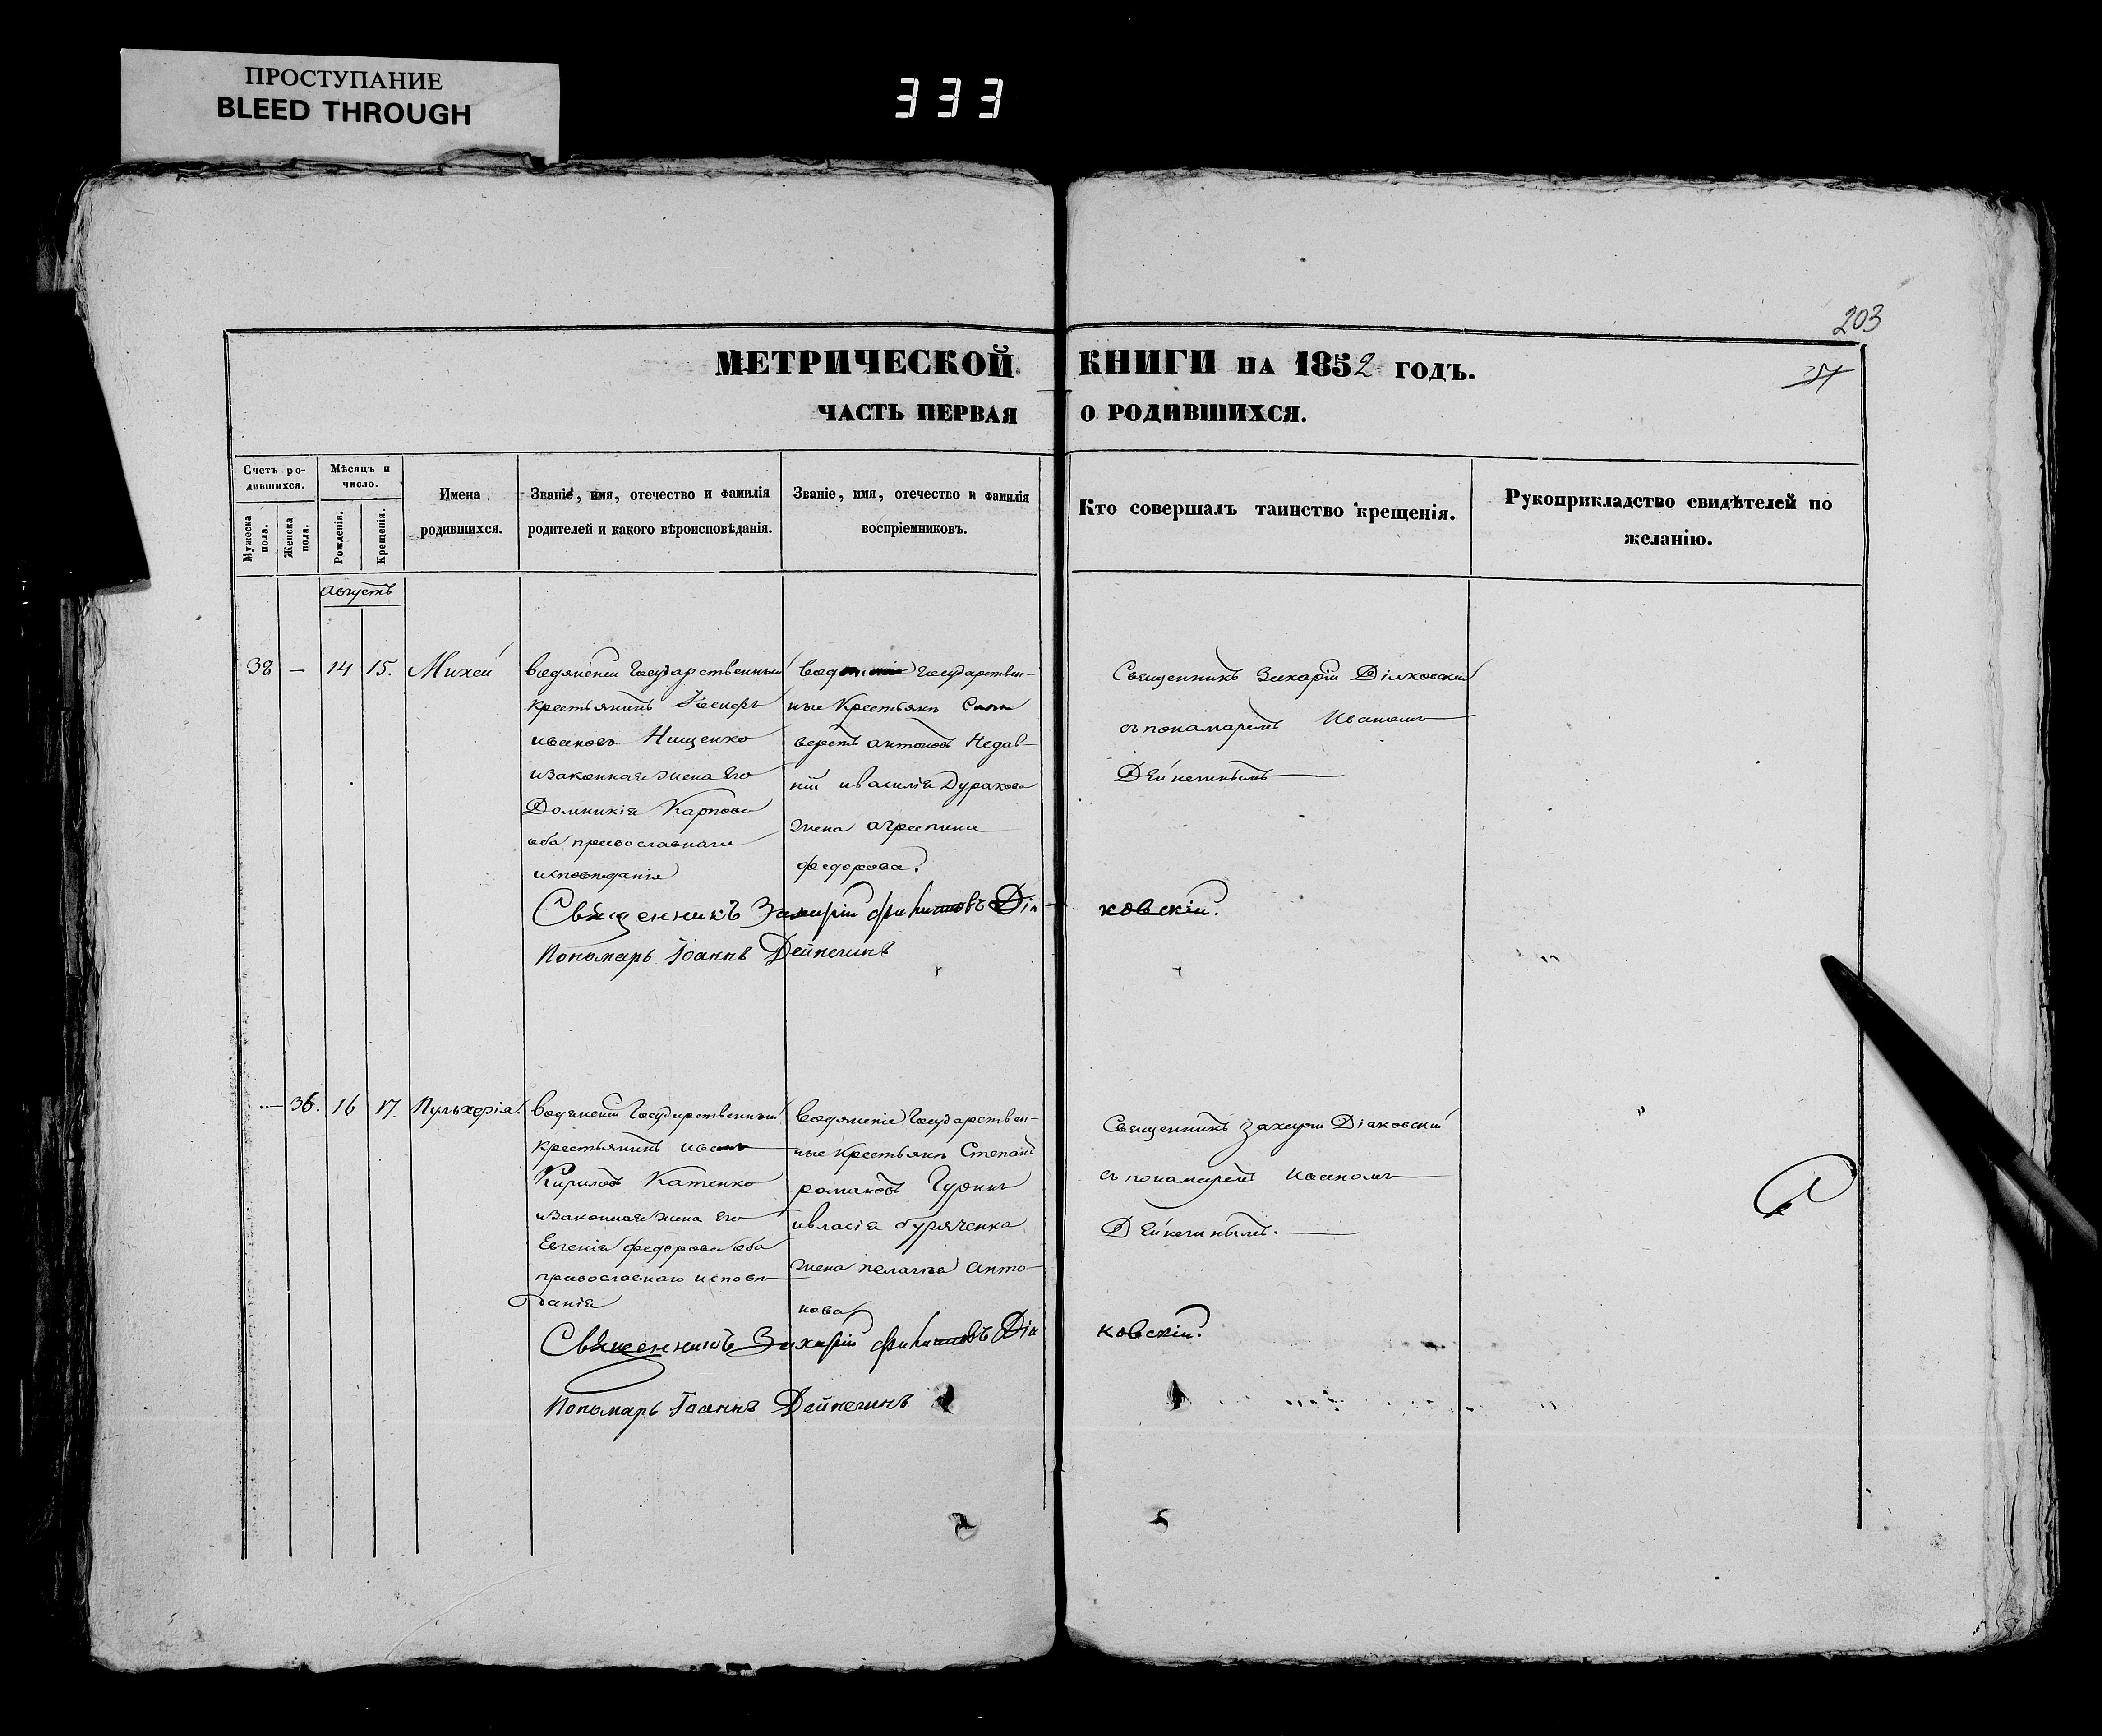 ПРОСТУПАНИЕ
BLEED THROUGH
333
203
МЕТРИЧЕСКОЙ КНИГИ НА 1852 ГОДЪ.
ЧАСТЬ ПЕРВАЯ О РОДИВШИХСЯ.
Счетъ ро-
дившихся.
Мужеска пола.
Женска пола.
Мѣсяцъ и
число.
Рожденія.
Крещенія.
Имена
родившихся.
Званіе, имя, отечество и фамилія
родителей и какого вѣроисповѣданія.
Званіе, имя, отечество и фамилія
воспріемниковъ.
Кто совершалъ таинство крещенія.
Рукоприкладство свидѣтелей по
желанію.
Августъ
38 — 14 15. Михей
Государственный
крестьянинъ
ивановъ Нищенко
изаконная жена Его
Домникія Карпова
оба православнаго
исповѣданія
Государствен-
ные Крестьяне
антоновъ Недав-
ній ивасилія Дуракова
жена агрепина
федорова.
Священникъ Захарій Діяковскій
съпонамаремъ Иваномъ
Дейнегинымъ
Священникъ Захарій Филиповъ Дія
ковскій.
Пономарь Іоаннъ Дейнегинъ
— 36. 16 17. Пульхерія
Государственный
крестьянинъ иванъ
Кириловъ Катенко
изаконная жена Его
Евгенія федорова оба
православнаго исповѣ
данія
Государствен-
ные крестьяне Степанъ
романовъ Гуринъ
ивласія буряченка
жена пелагея Анто-
нова
Священникъ Захарій Діяковскій
съ понамаремъ Иваномъ
Дейнегинымъ.
Священникъ Захарій Филиповъ Дія
ковскій.
Пономарь Іоаннъ Дейнегинъ